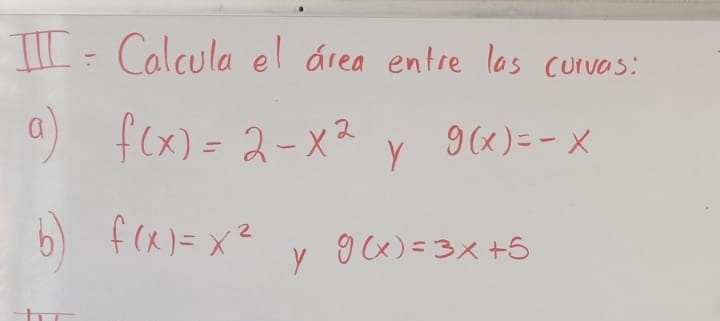 III = Calcula el área entre las curvas:
a) f(x) = 2 - x² y g(x) = - x
b) f(x) = x² y g(x) = 3x + 5